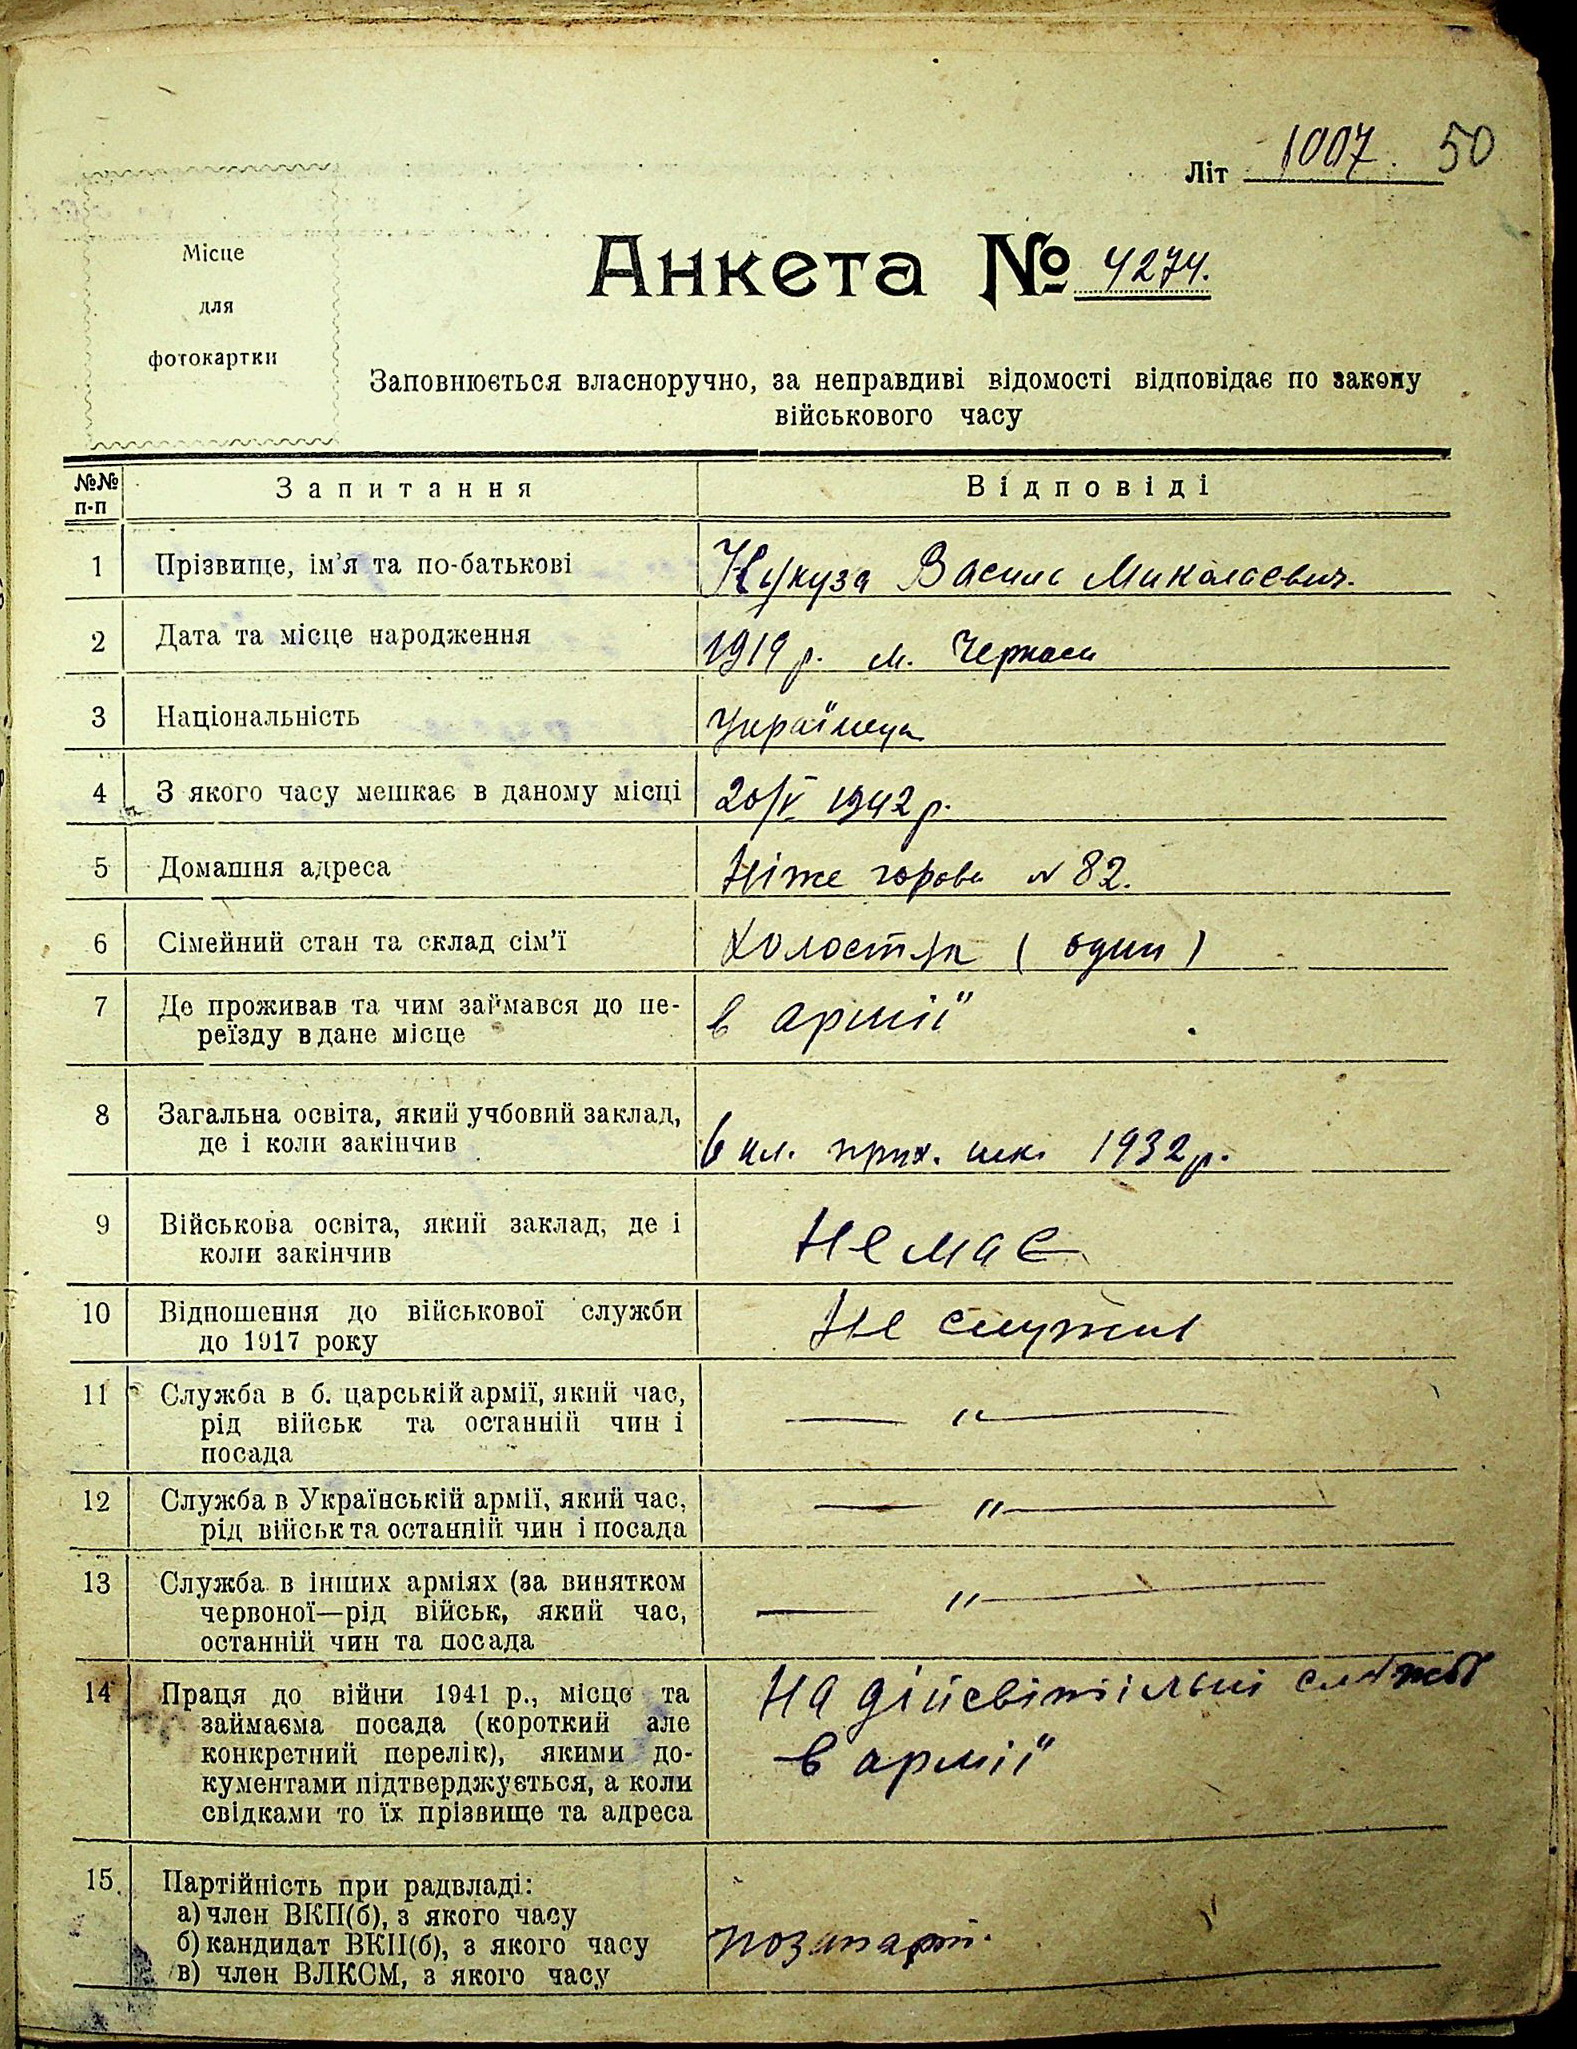 Літ 1007. 50
Місце
для
фотокартки
Анкета № 4274.
Заповнюється власноручно, за неправдиві відомості відповідає по закону
військового часу
№№ п-п Запитання Відповіді
1 Прізвище, ім'я та по-батькові Василь Миколаєвич.
2 Дата та місце народження 1919 р. м. Черкаси
3 Національність Українець
4 З якого часу мешкає в даному місці 20/V 1942 р.
5 Домашня адреса № 82.
6 Сімейний стан та склад сім'ї Холостяк ( один )
7 Де проживав та чим займався до пе-
реїзду в дане місце в армії
8 Загальна освіта, який учбовий заклад,
де і коли закінчив 6 кл. шк. 1932 р.
9 Військова освіта, який заклад, де і
коли закінчив Немає
10 Відношення до військової служби
до 1917 року Не служил
11 Служба в б. царській армії, який час,
рід військ та останній чин і
посада — " —
12 Служба в Українській армії, який час,
рід військ та останній чин і посада — " —
13 Служба в інших арміях (за винятком
червоної—рід військ, який час,
останній чин та посада — " —
14 Праця до війни 1941 р., місце та На службі
займаєма посада (короткий але
конкретний перелік), якими до- в армії
кументами підтверджується, а коли
свідками то їх прізвище та адреса
15. Партійність при радвладі:
а) член ВКП(б), з якого часу
б) кандидат ВКП(б), з якого часу позапарт.
в) член ВЛКСМ, з якого часу